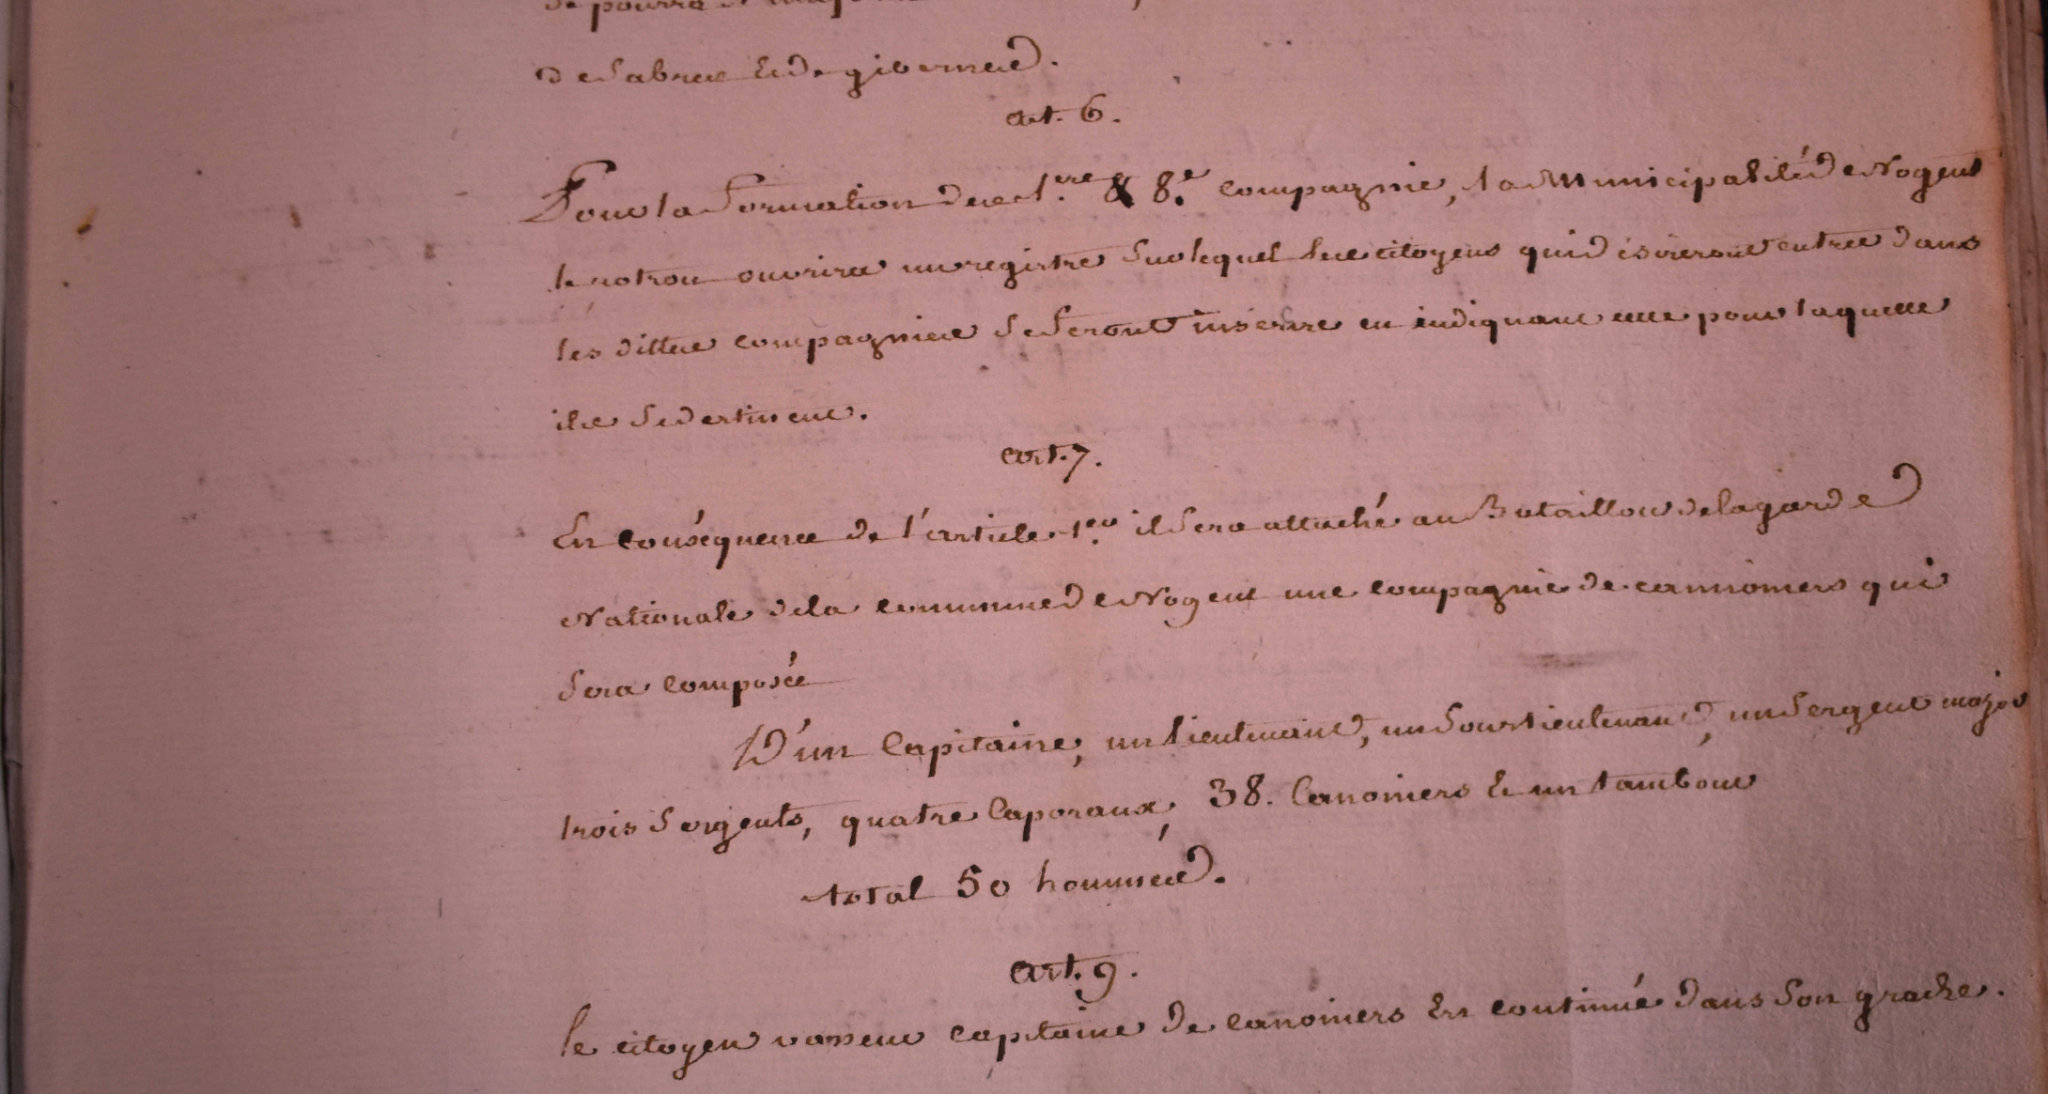 de pourra et
de Sabres Et de gibernes.
art. 6.
Pour la formation des 1.ere & 8.e compagnie, la Municipalité de Nogent
le rotrou ouvrira un registre Sur lequel les citoyens qui désireront entrer dans
les dittes compagnies Se feront inscrire en indiquant celle pour laquelle
ils Se destinent.
art. 7.
En conséquence de l'article 1.er il Sera attaché au Bataillon de la garde
Nationale de la commune de Nogent une compagnie de cannoniers qui
Sera composée
D'un Capitaine, un lieutenant, un Sous lieutenant, un Sergent major
trois Sergents, quatre Caporaux, 38. Canoniers Et un tambour
total 50 hommes.
art. 9.
le citoyen vasseur capitaine de canoniers Est continué dans Son grade.